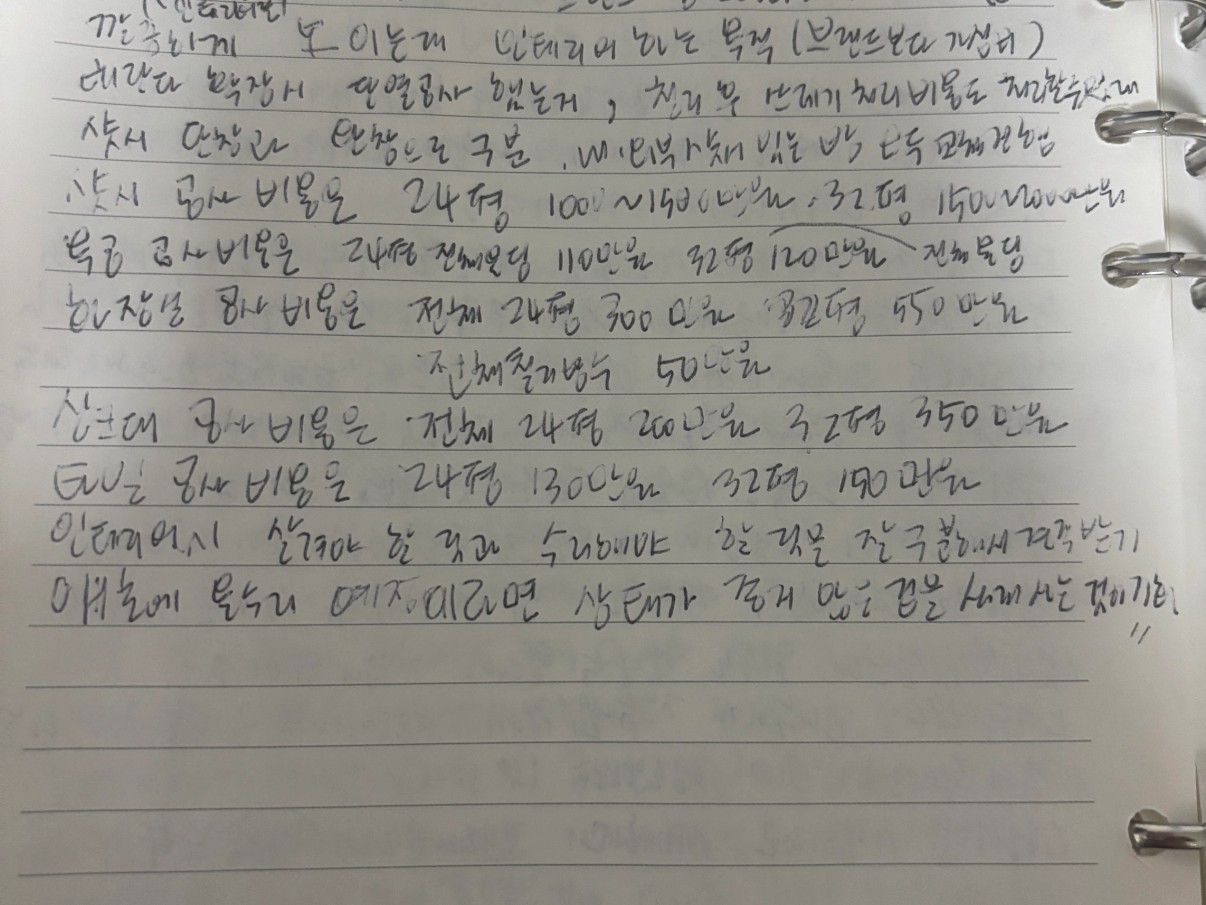 깔끔하게 보이는데 인테리어 하는 목적 (브랜드보다 가성비)
베란다 확장시 단열공사 했는지, 철거 후 쓰레기 처리비용도
샷시 단창과 으로 구분. 내·외부 샷시 있는 방 모두
샷시 공사 비용은 24평 1000~1500만원. 32평 1500~2000만원
목공 공사비용은 24평 전체몰딩 110만원 32평 120만원 전체몰딩
화장실 공사 비용은 전체 24평 300만원 평 550만원
전체 방수 50만원
싱크대 공사 비용은 전체 24평 200만원 32평 350만원
공사 비용은 24평 130만원 32평 150만원
인테리어시 살려야 할 것과 수리해야 할 것을 잘 구분해서 견적받기
애초에 올수리 예정이라면 상태가 좋지 않은 집을 싸게 사는 것이